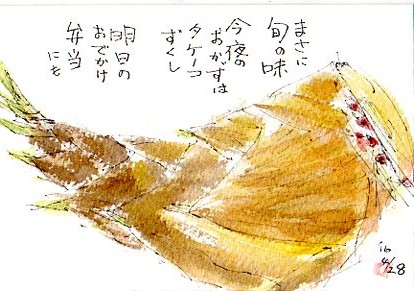 まさに
旬の味
今夜の
おかずは
タケーコ
ずくし
明日の
おでかけ
弁当
にも
'16
4/28